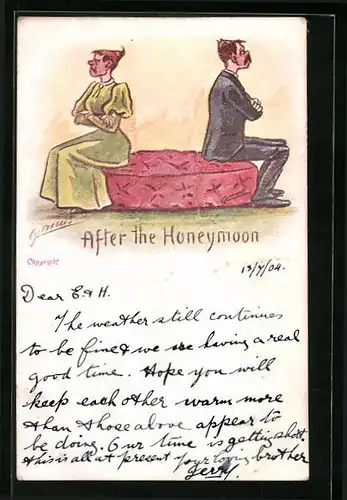 After the Honeymoon
Copyright
13/7/04.
Dear E & H.
The weather still continues
to be fine & we are having a real
good time. Hope you will
keep each other warm more
than those above appear to
be doing. Our time is getting short,
this is all at present your loving brother
Jerry.